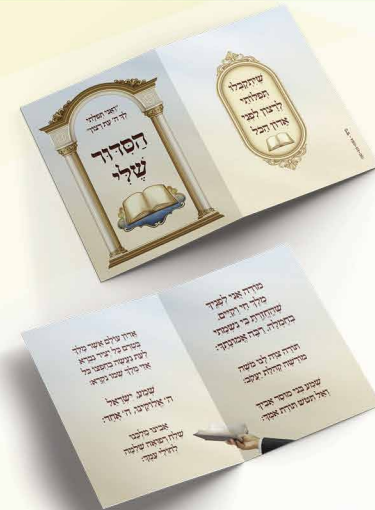 וַאֲנִי תְפִלָּתִי
לְךָ ה' עֵת רָצוֹן
הַסִּדּוּר
שֶׁלִּי
שֶׁיִּתְקַבְּלוּ
תְּפִלּוֹתַי
לְרָצוֹן לִפְנֵי
אֲדוֹן הַכֹּל
מוֹדֶה אֲנִי לְפָנֶיךָ
מֶלֶךְ חַי וְקַיָּם,
שֶׁהֶחֱזַרְתָּ בִּי נִשְׁמָתִי
בְּחֶמְלָה. רַבָּה אֱמוּנָתֶךָ:
תּוֹרָה צִוָּה לָנוּ מֹשֶׁה
מוֹרָשָׁה קְהִלַּת יַעֲקֹב:
שְׁמַע בְּנִי מוּסַר אָבִיךָ
וְאַל תִּטֹּשׁ תּוֹרַת אִמֶּךָ:
אֲדוֹן עוֹלָם אֲשֶׁר מָלַךְ
בְּטֶרֶם כָּל יְצִיר נִבְרָא
לְעֵת נַעֲשָׂה בְחֶפְצוֹ כֹּל
אֲזַי מֶלֶךְ שְׁמוֹ נִקְרָא:
שְׁמַע, יִשְׂרָאֵל
ה' אֱלֹקֵינוּ, ה' אֶחָד:
אָבִינוּ מַלְכֵּנוּ
שְׁלַח רְפוּאָה שְׁלֵמָה
לְחוֹלֵי עַמֶּךָ: